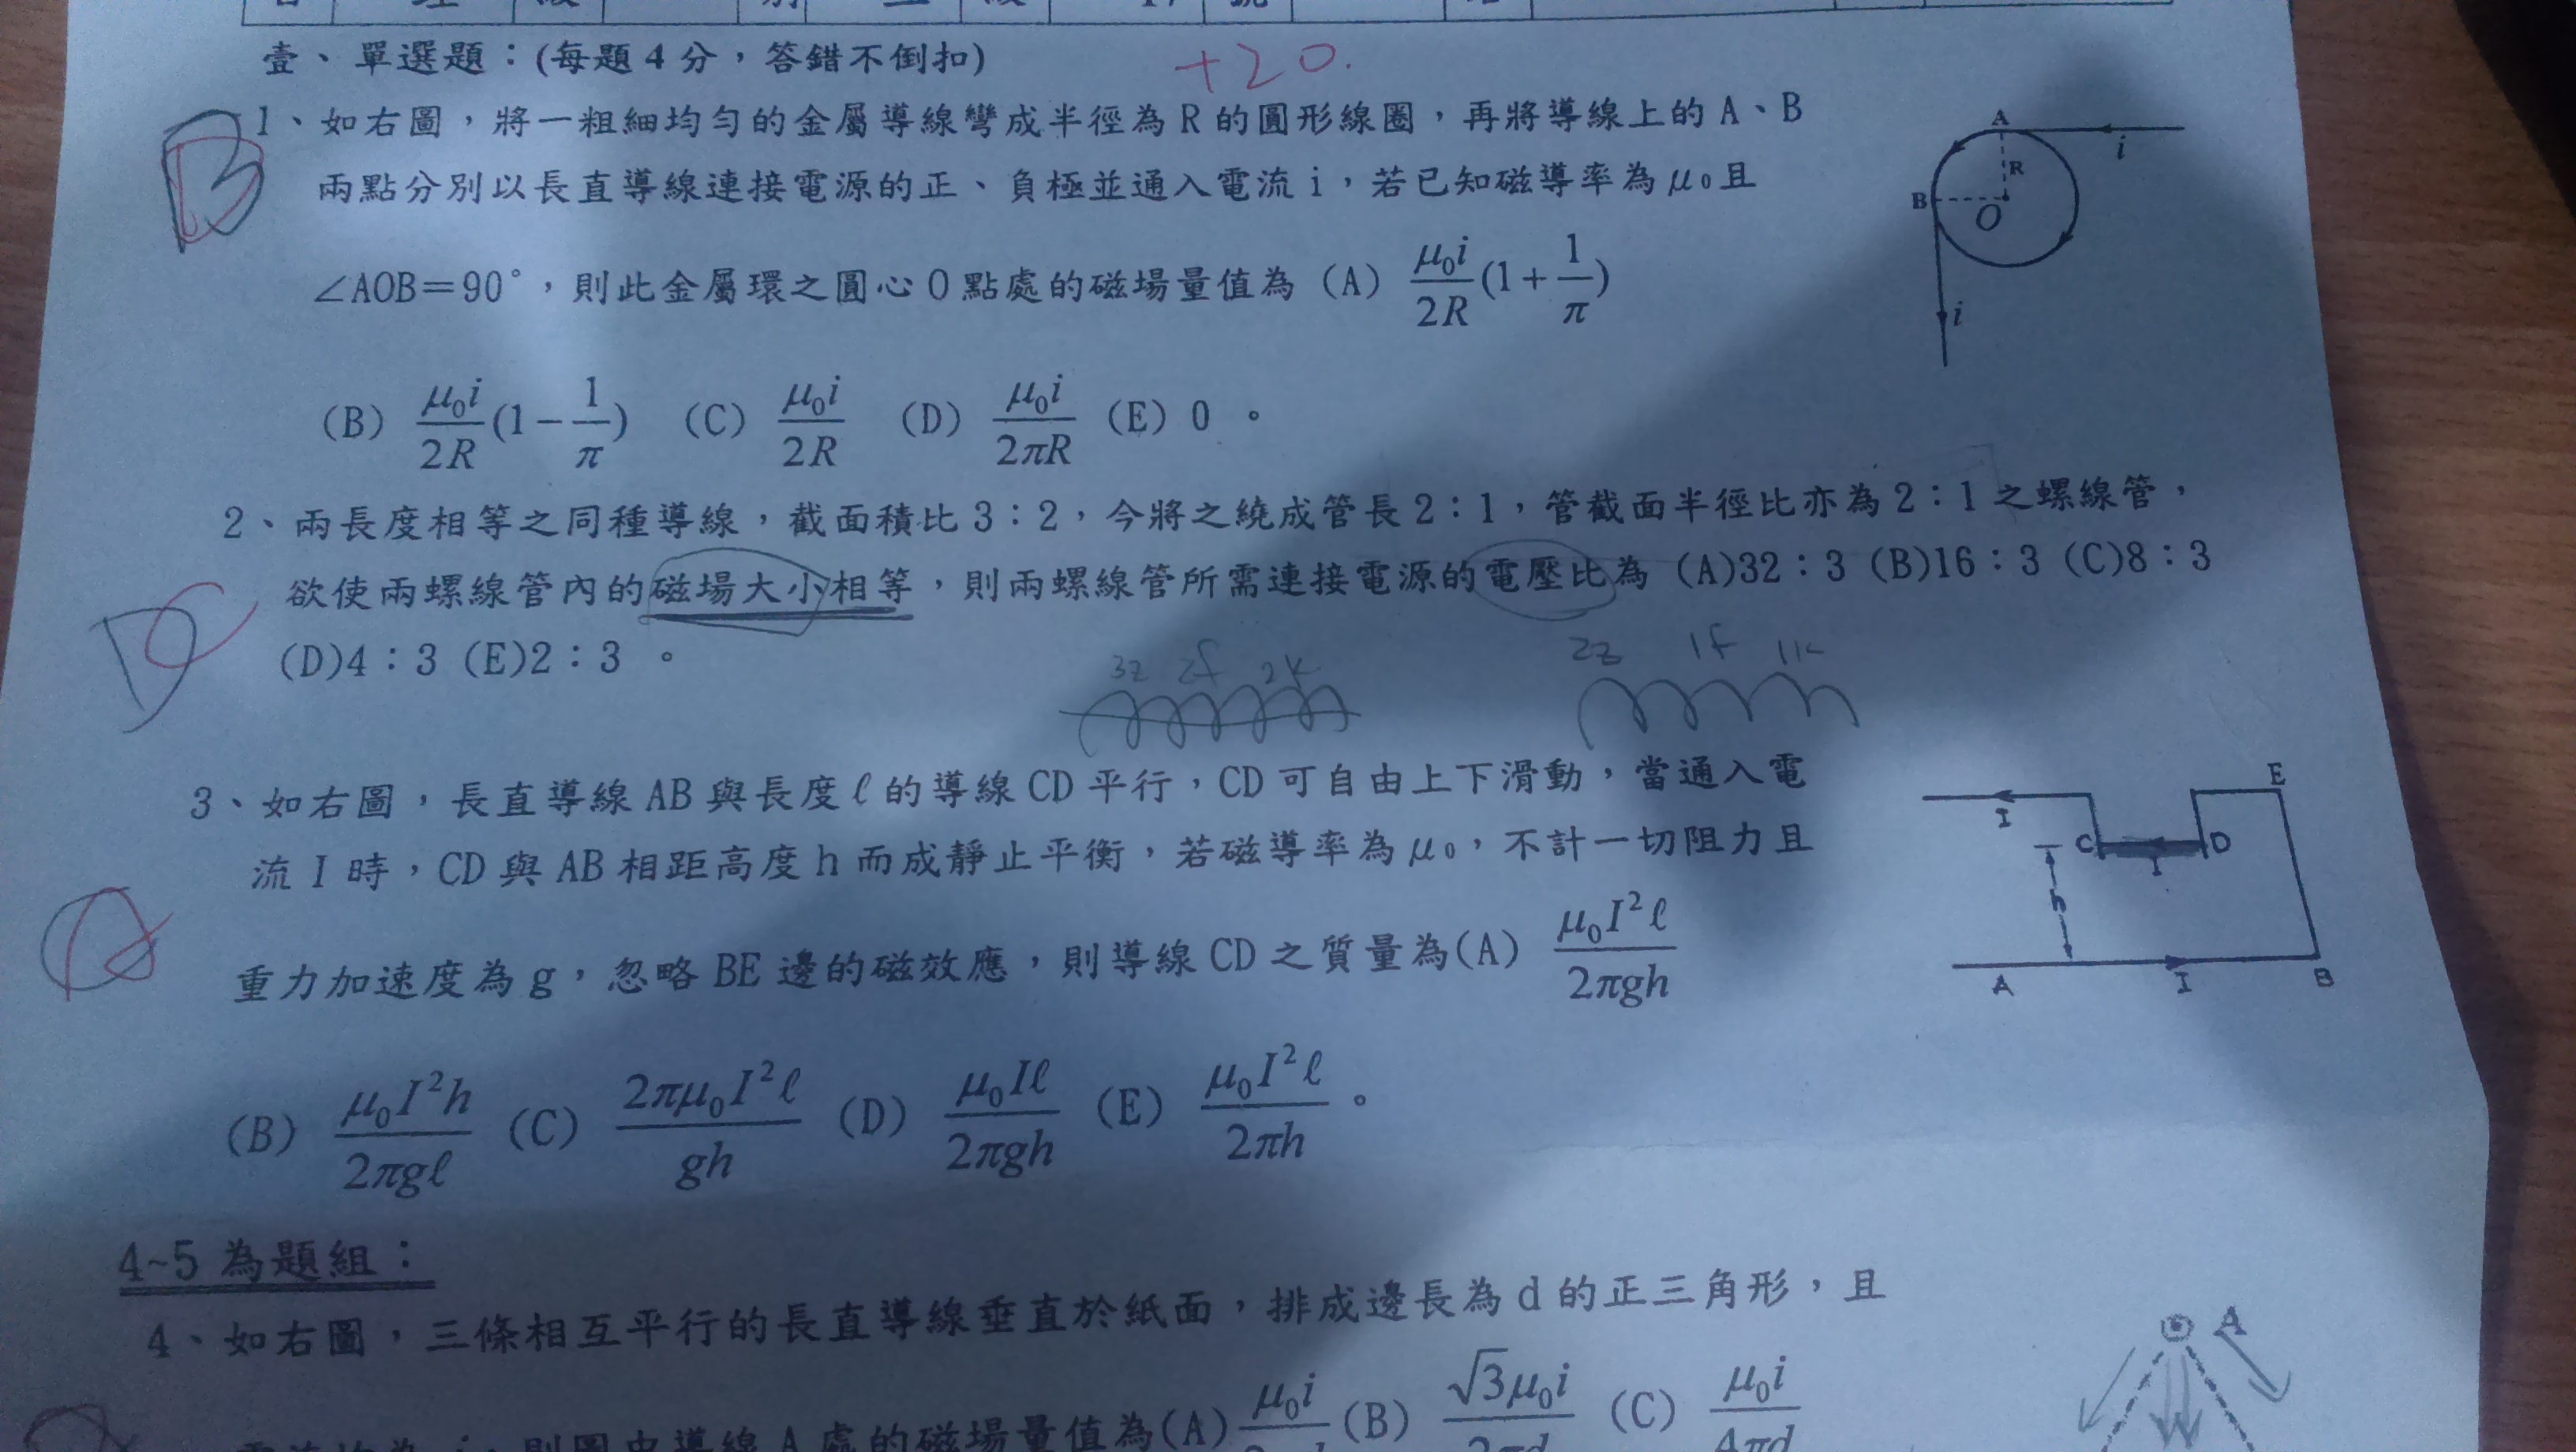 壹、單選題：(每題4分，答錯不倒扣)
+20.
B D
1、如右圖，將一粗細均勻的金屬導線彎成半徑為R的圓形線圈，再將導線上的A、B
兩點分別以長直導線連接電源的正、負極並通入電流i，若已知磁導率為μ₀且
∠AOB=90°，則此金屬環之圓心O點處的磁場量值為 (A) μ₀i/2R(1+1/π)
(B) μ₀i/2R(1-1/π) (C) μ₀i/2R (D) μ₀i/2πR (E) 0 。
A
R
i
B
O
i
2、兩長度相等之同種導線，截面積比3：2，今將之繞成管長2：1，管截面半徑比亦為2：1之螺線管，
欲使兩螺線管內的磁場大小相等，則兩螺線管所需連接電源的電壓比為 (A)32：3 (B)16：3 (C)8：3
(D)4：3 (E)2：3 。
D C
3、如右圖，長直導線AB與長度ℓ的導線CD平行，CD可自由上下滑動，當通入電
流I時，CD與AB相距高度h而成靜止平衡，若磁導率為μ₀，不計一切阻力且
重力加速度為g，忽略BE邊的磁效應，則導線CD之質量為(A) μ₀I²ℓ/2πgh
(B) μ₀I²h/2πgℓ (C) 2πμ₀I²ℓ/gh (D) μ₀Iℓ/2πgh (E) μ₀I²ℓ/2πh 。
E
I
C
I
D
h
A
I
B
4~5為題組：
4、如右圖，三條相互平行的長直導線垂直於紙面，排成邊長為d的正三角形，且
i，則圖中導線A處的磁場量值為(A) μ₀i (B) √3μ₀i (C) μ₀i/4πd
A